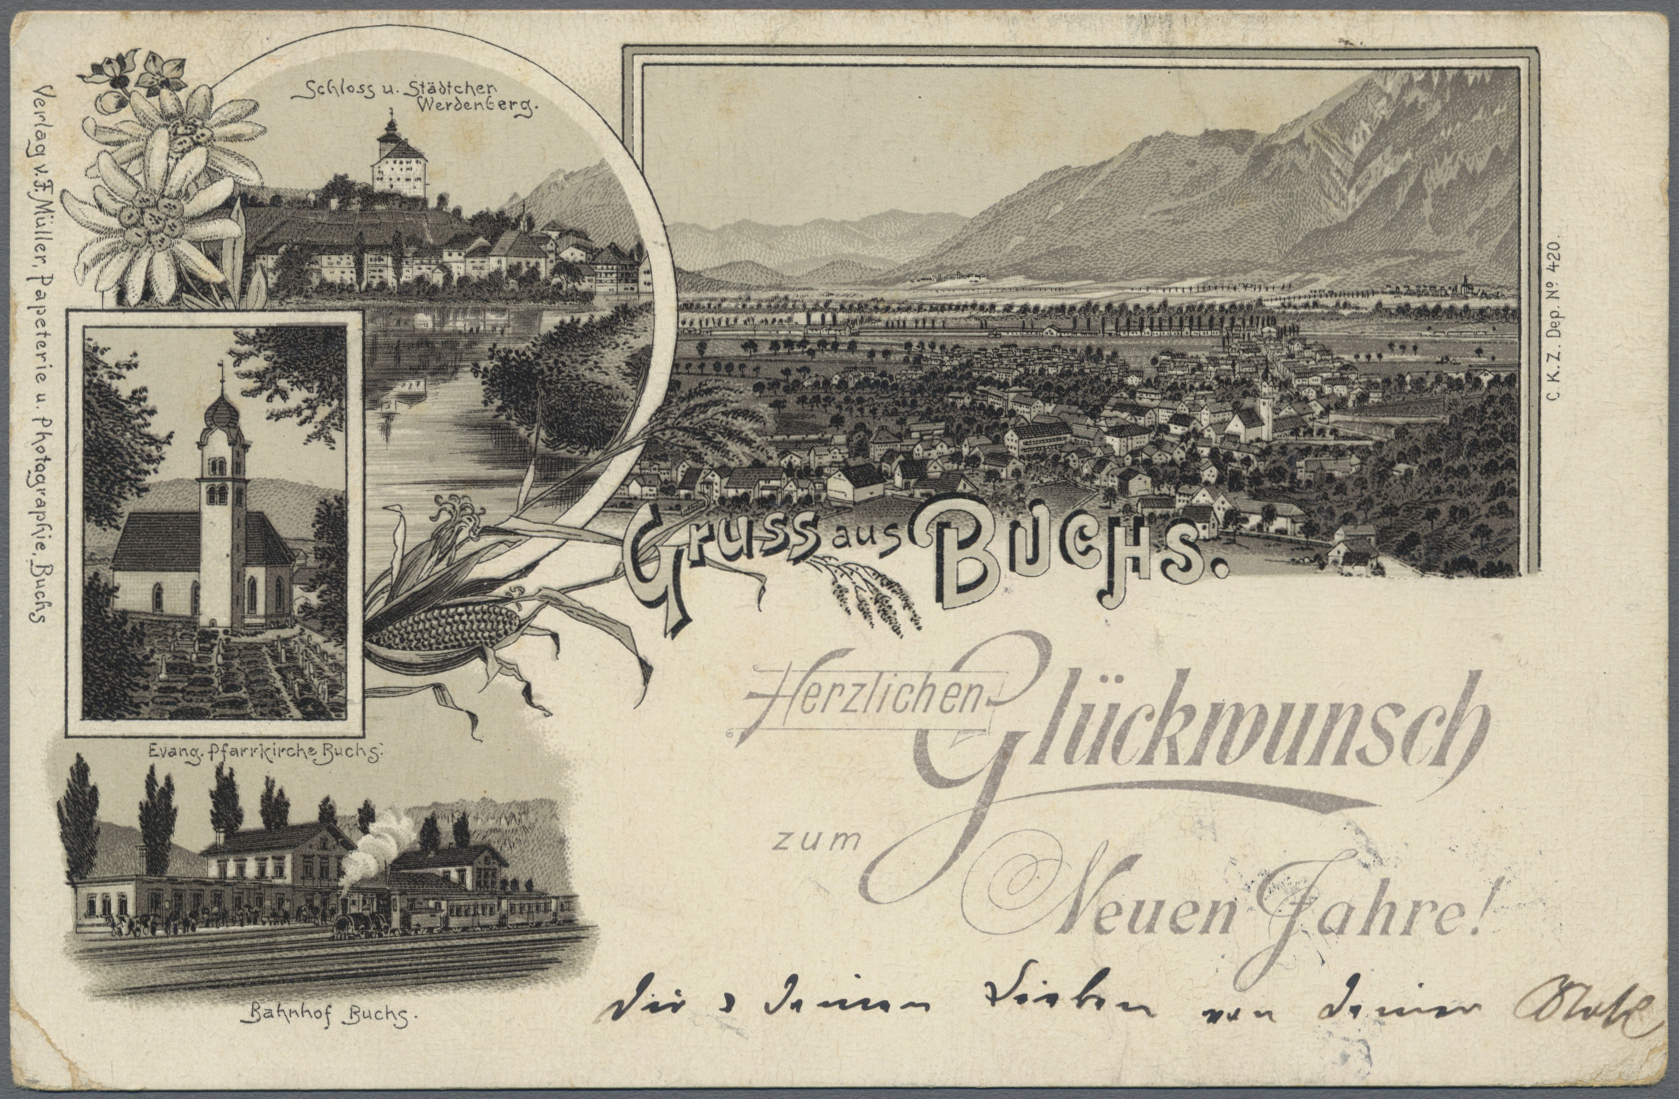 Schloss u. Städtchen
Werdenberg.
Verlag v. F. Müller, Papeterie u. Photographie, Buchs
C. K. Z. Dep. Nº 420.
Gruss aus Buchs.
Evang. Pfarrkirche Buchs.
Herzlichen Glückwunsch
zum
Neuen Jahre!
Bahnhof Buchs.
Dir & deinen Lieben von deiner